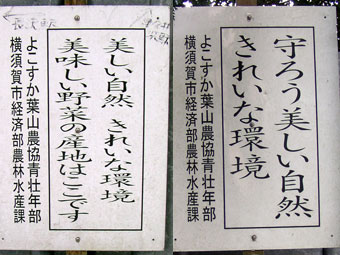 美しい自然　きれいな環境
美味しい野菜の産地はここです
よこすか葉山農協青壮年部
横須賀市経済部農林水産課
守ろう美しい自然
きれいな環境
よこすか葉山農協青壮年部
横須賀市経済部農林水産課